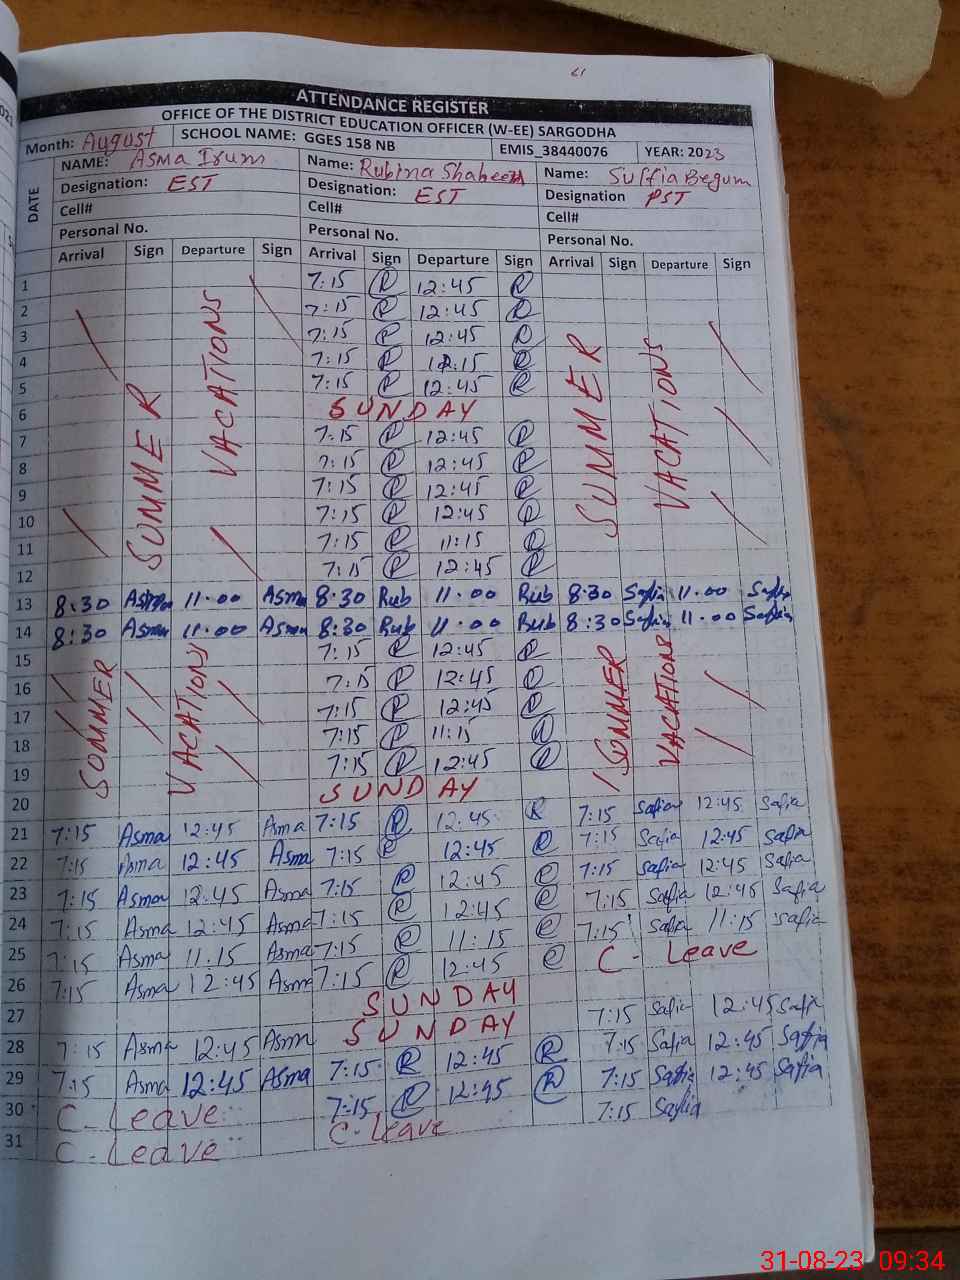 ATTENDANCE REGISTER
OFFICE OF THE DISTRICT EDUCATION OFFICER (W-EE) SARGODHA
Month: August SCHOOL NAME: GGES 158 NB EMIS_38440076 YEAR: 2023
DATE
NAME: Asma Irum Name: Rubina Shaheen Name: Suffia Begum
Designation: EST Designation: EST Designation PST
Cell# Cell# Cell#
Personal No. Personal No. Personal No.
Arrival Sign Departure Sign Arrival Sign Departure Sign Arrival Sign Departure Sign
SUMMER VACATIONS
SUMMER VACATIONS
1 7:15 R 12:45 R
2 7:15 R 12:45 R
3 7:15 R 12:45 R
4 7:15 R 12:15 R
5 7:15 R 12:45 R
6 SUNDAY
7 7:15 R 12:45 R
8 7:15 R 12:45 R
9 7:15 R 12:45 R
10 7:15 R 12:45 R
11 7:15 R 11:15 R
12 7:15 R 12:45 R
13 8:30 Asma 11.00 Asma 8:30 Rub 11.00 Rub 8:30 Safia 11.00 Safia
14 8:30 Asma 11.00 Asma 8:30 Rub 11.00 Rub 8:30 Safia 11.00 Safia
SUMMER VACATIONS
SUMMER VACATIONS
15 7:15 R 12:45 R
16 7:15 R 12:45 R
17 7:15 R 12:45 R
18 7:15 R 11:15 R
19 7:15 R 12:45 R
20 SUNDAY
21 7:15 Asma 12:45 Asma 7:15 R 12:45 R 7:15 Safia 12:45 Safia
22 7:15 Asma 12:45 Asma 7:15 R 12:45 R 7:15 Safia 12:45 Safia
23 7:15 Asma 12:45 Asma 7:15 R 12:45 R 7:15 Safia 12:45 Safia
24 7:15 Asma 12:45 Asma 7:15 R 12:45 R 7:15 Safia 12:45 Safia
25 7:15 Asma 11:15 Asma 7:15 R 11:15 R 7:15 Safia 11:15 Safia
26 7:15 Asma 12:45 Asma 7:15 R 12:45 R C- Leave
27 SUNDAY
28 7:15 Asma 12:45 Asma SUNDAY 7:15 Safia 12:45 Safia
29 7:15 Asma 12:45 Asma 7:15 R 12:45 R 7:15 Safia 12:45 Safia
30 C-Leave 7:15 R 12:45 R 7:15 Safia 12:45 Safia
31 C-Leave C-Leave 7:15 Safia
31-08-23 09:34